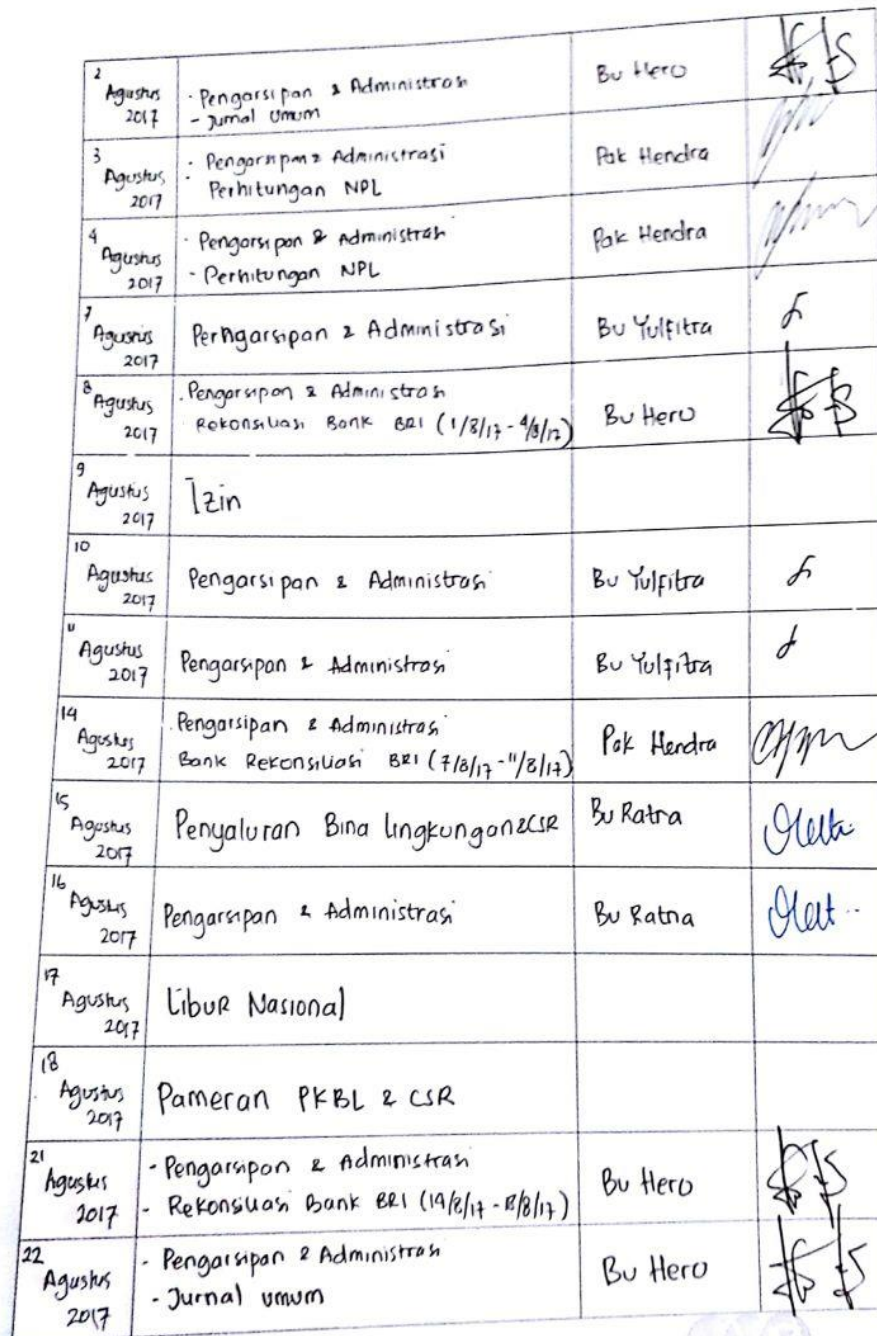 2
Agustus
2017
- Pengarsipan & Administrasi
- Jurnal Umum
Bu Hero
3
Agustus
2017
- Pengarsipan & Administrasi
- Perhitungan NPL
Pak Hendra
4
Agustus
2017
- Pengarsipan & Administrasi
- Perhitungan NPL
Pak Hendra
7
Agustus
2017
Perngarsipan & Administrasi
Bu Yulfitra
8
Agustus
2017
. Pengarsipan & Administrasi
Rekonsiliasi Bank BRI (1/8/17 - 4/8/17)
Bu Hero
9
Agustus
2017
Izin
10
Agustus
2017
Pengarsipan & Administrasi
Bu Yulfitra
11
Agustus
2017
Pengarsipan & Administrasi
Bu Yulfitra
14
Agustus
2017
. Pengarsipan & Administrasi
Bank Rekonsiliasi BRI (7/8/17 - 11/8/17)
Pak Hendra
15
Agustus
2017
Penyaluran Bina Lingkungan & CSR
Bu Ratna
16
Agustus
2017
Pengarsipan & Administrasi
Bu Ratna
17
Agustus
2017
Libur Nasional
18
Agustus
2017
Pameran PKBL & CSR
21
Agustus
2017
- Pengarsipan & Administrasi
- Rekonsiliasi Bank BRI (14/8/17 - 18/8/17)
Bu Hero
22
Agustus
2017
- Pengarsipan & Administrasi
- Jurnal umum
Bu Hero